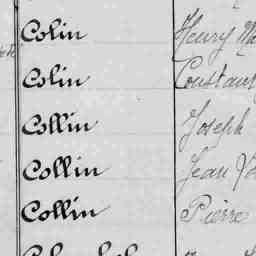 Colin Henry
Colin Constant
Collin Joseph
Collin Jean
Collin Pierre